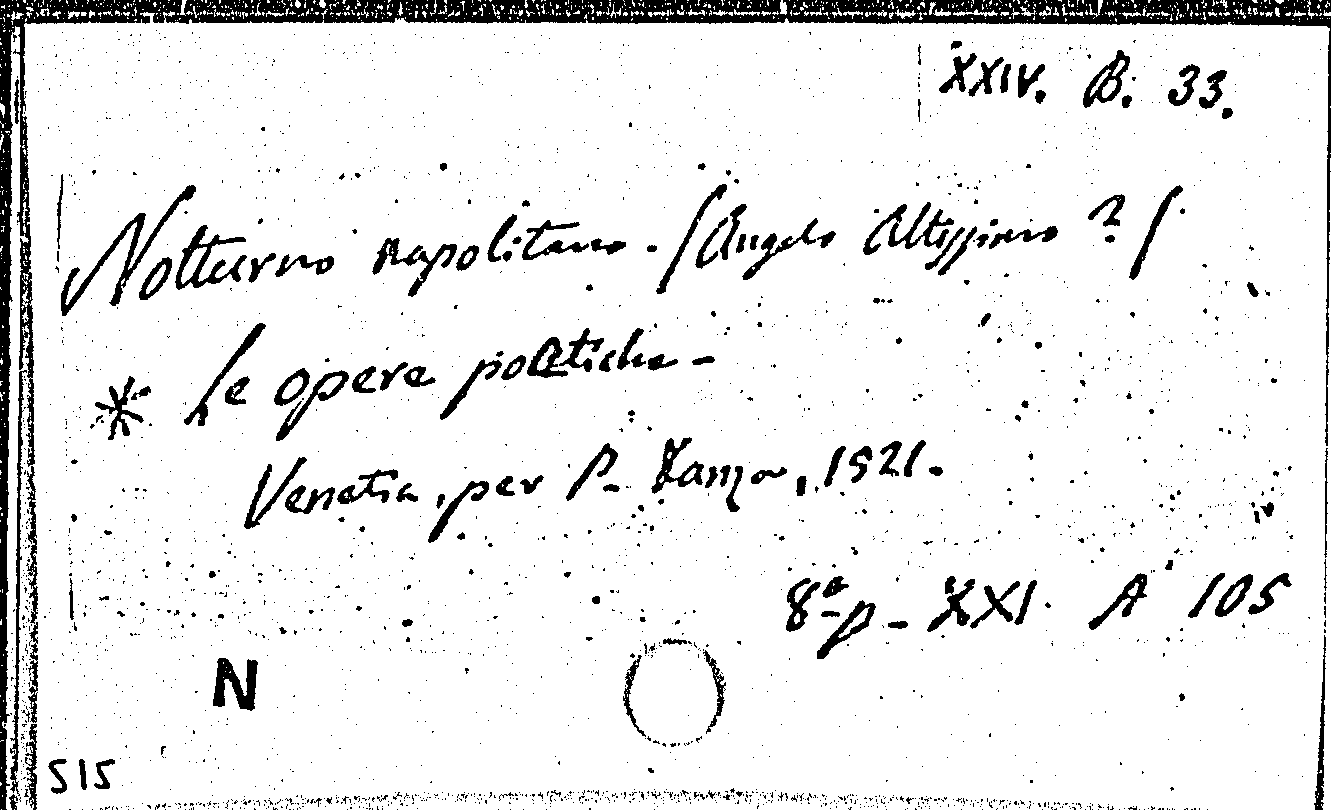 XXIV. B. 33.
Notturno napolitano. (Angelo Altissimo ?)
* Le opere poetiche -
Venetia, per P. , 1521.
8º p - XXI A 105
N
515